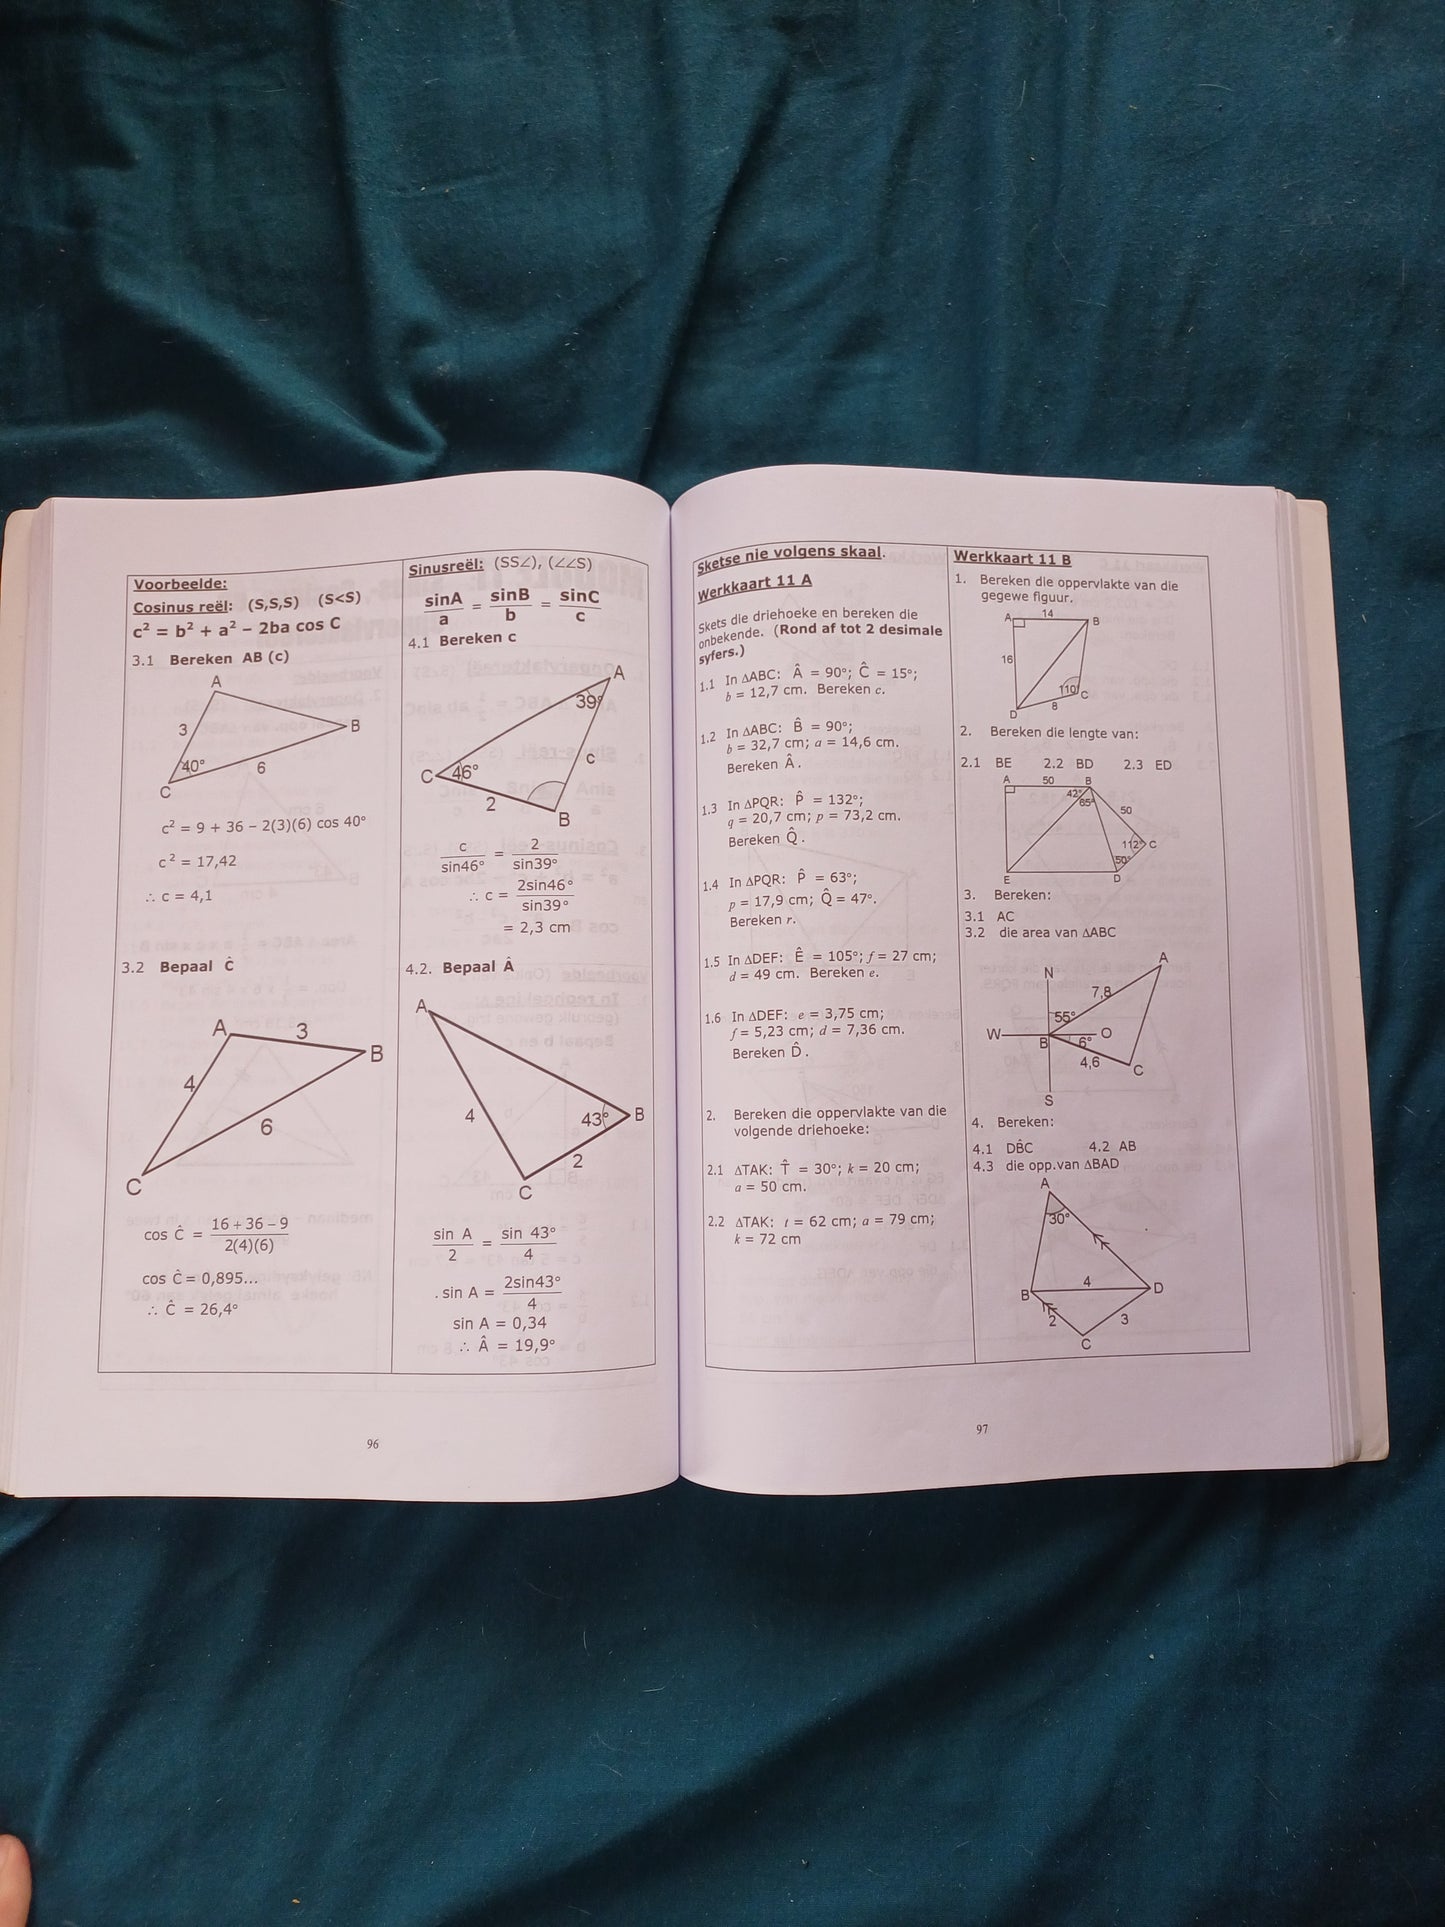 Voorbeelde:
Cosinus reël: (S,S,S) (S<S)
c² = b² + a² – 2ba cos C
3.1 Bereken AB (c)
A
3
B
40°
6
C
c² = 9 + 36 – 2(3)(6) cos 40°
c² = 17,42
∴ c = 4,1
3.2 Bepaal Ĉ
A
3
B
4
6
C
cos Ĉ = (16 + 36 – 9)/(2(4)(6))
cos Ĉ = 0,895...
∴ Ĉ = 26,4°
Sinusreël: (SS∠), (∠∠S)
sinA/a = sinB/b = sinC/c
4.1 Bereken c
A
39°
c
C
46°
2
B
c/sin46° = 2/sin39°
∴ c = 2sin46°/sin39°
= 2,3 cm
4.2. Bepaal Â
A
4
43°
B
2
C
sin A/2 = sin 43°/4
. sin A = 2sin43°/4
sin A = 0,34
∴ Â = 19,9°
96
Sketse nie volgens skaal.
Werkkaart 11 A
Skets die driehoeke en bereken die
onbekende. (Rond af tot 2 desimale
syfers.)
1.1 In ∆ABC: Â = 90°; Ĉ = 15°;
b = 12,7 cm. Bereken c.
1.2 In ∆ABC: B̂ = 90°;
b = 32,7 cm; a = 14,6 cm.
Bereken Â.
1.3 In ∆PQR: P̂ = 132°;
q = 20,7 cm; p = 73,2 cm.
Bereken Q̂.
1.4 In ∆PQR: P̂ = 63°;
p = 17,9 cm; Q̂ = 47°.
Bereken r.
1.5 In ∆DEF: Ê = 105°; f = 27 cm;
d = 49 cm. Bereken e.
1.6 In ∆DEF: e = 3,75 cm;
f = 5,23 cm; d = 7,36 cm.
Bereken D̂.
2. Bereken die oppervlakte van die
volgende driehoeke:
2.1 ∆TAK: T̂ = 30°; k = 20 cm;
a = 50 cm.
2.2 ∆TAK: t = 62 cm; a = 79 cm;
k = 72 cm
Werkkaart 11 B
1. Bereken die oppervlakte van die
gegewe figuur.
A
14
B
16
110°
C
D
8
2. Bereken die lengte van:
2.1 BE 2.2 BD 2.3 ED
A
50
B
42°
65°
50
112°
C
50°
E
D
3. Bereken:
3.1 AC
3.2 die area van ∆ABC
N
A
7,8
55°
W
O
B
6°
4,6
C
S
4. Bereken:
4.1 DB̂C 4.2 AB
4.3 die opp.van ∆BAD
A
30°
4
B
D
2
3
C
97